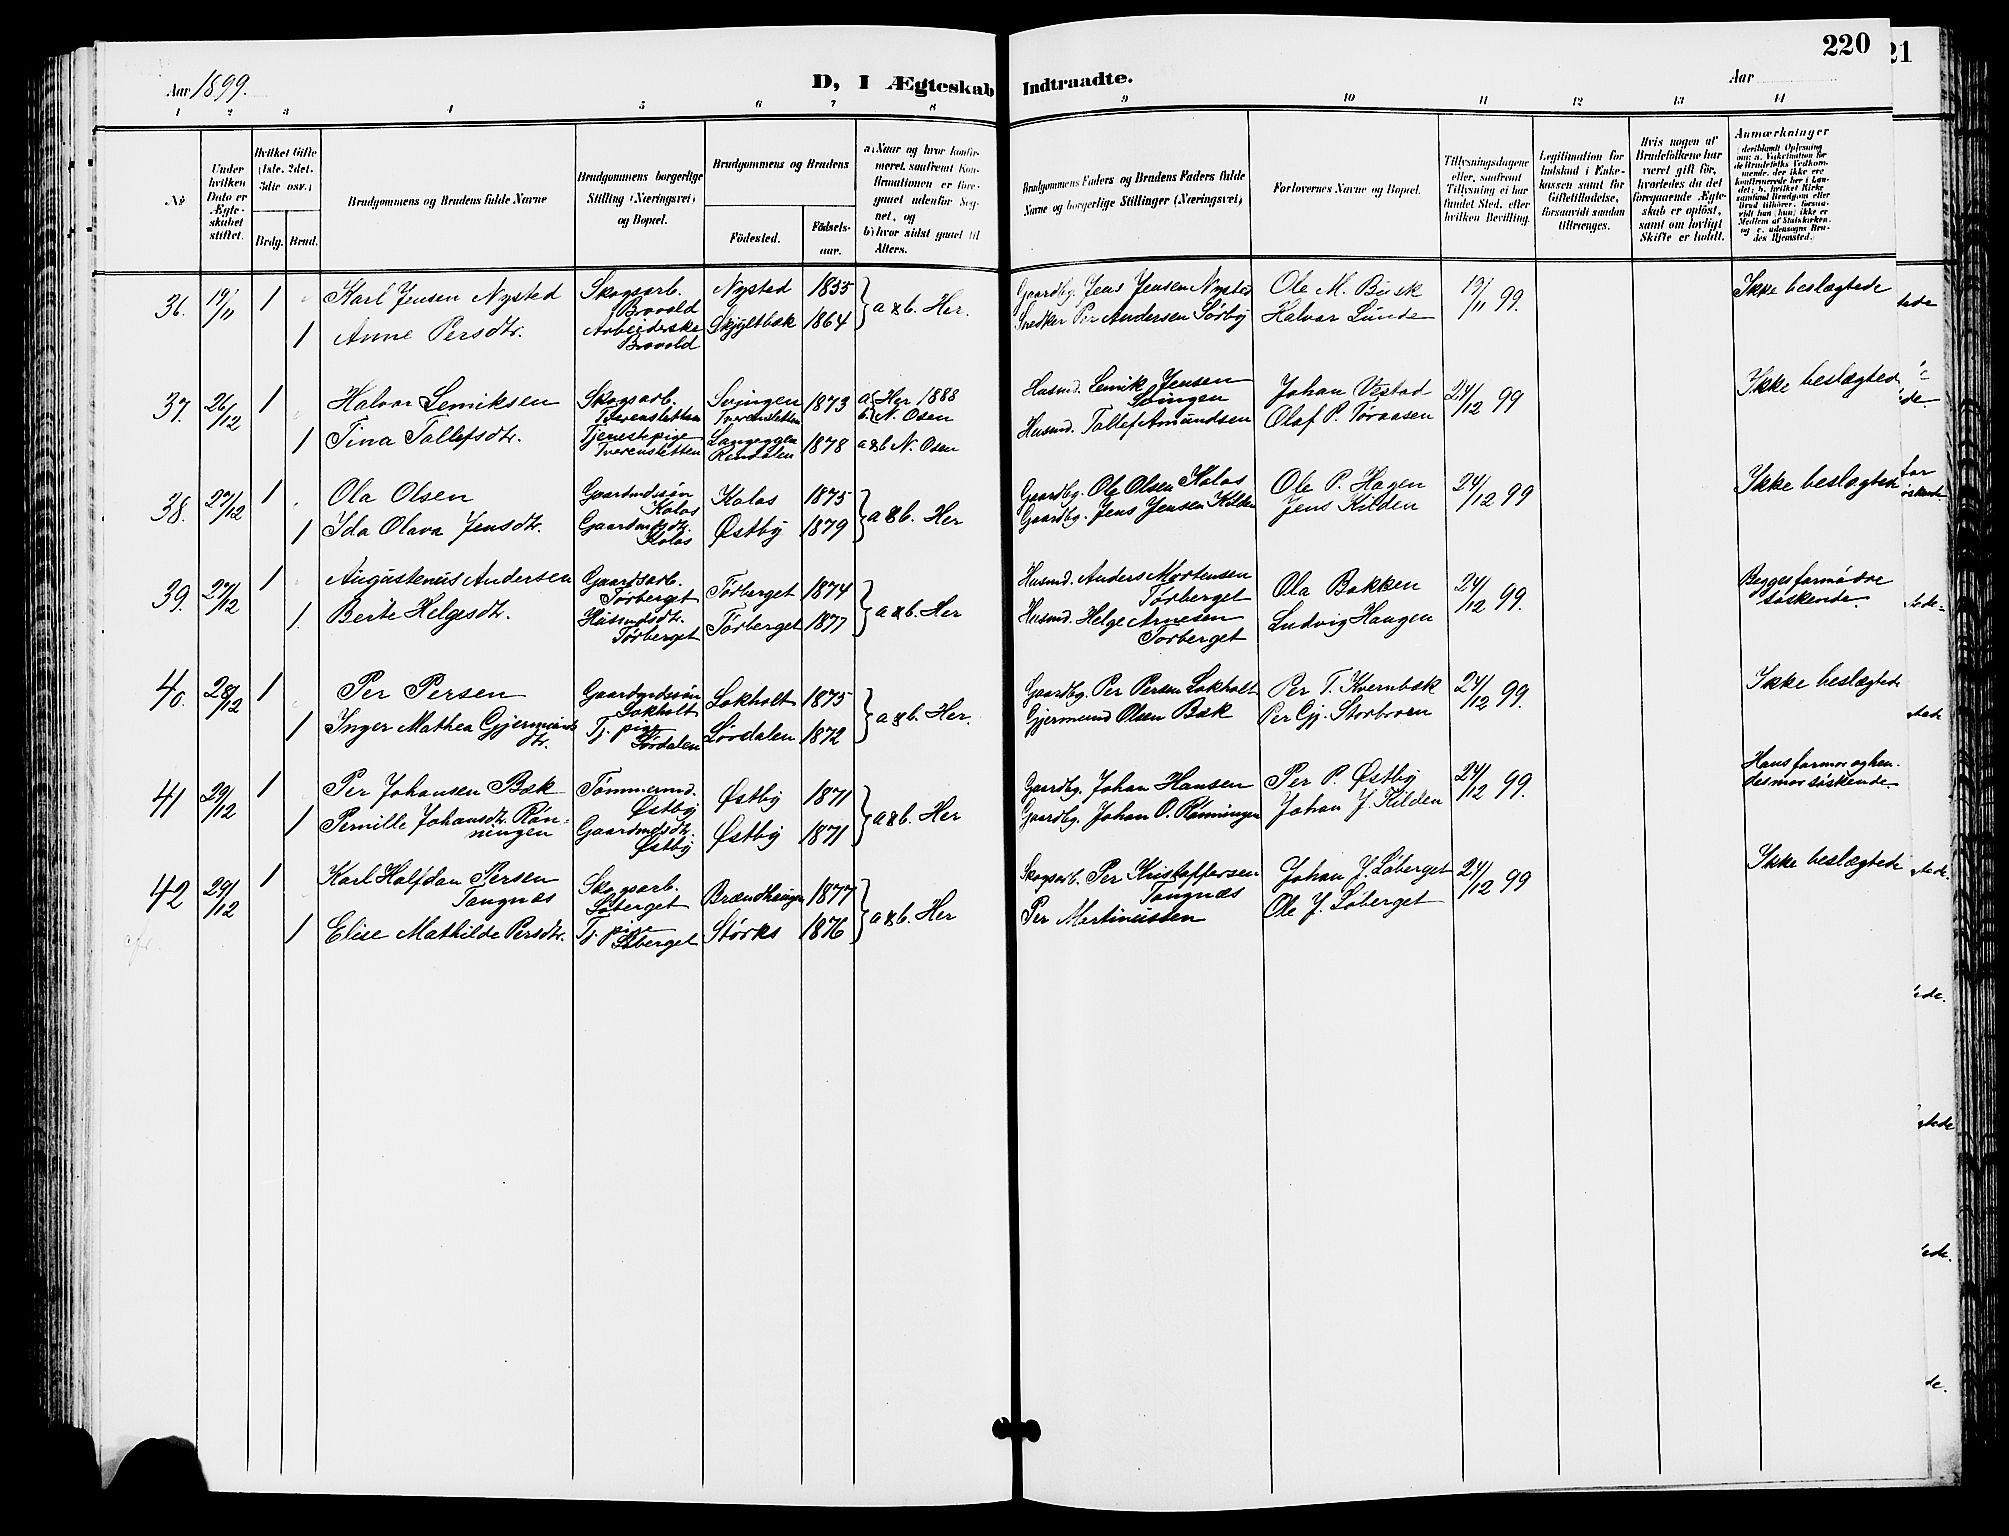 220
21
Aar 1899.
D, I Ægteskab Indtraadte.
Aar
1 2 3 4 5 6 7 8 9 10 11 12 13 14
Nr.
Under hvilken Dato er Ægteskabet stiftet.
Hvilket Gifte (1ste, 2det, 3die osv.)
Brdg. Brud.
Brudgommens og Brudens fulde Navne
Brudgommens borgerlige Stilling (Næringsvei) og Bopæl.
Brudgommens og Brudens
Fødested.
Fødselsaar.
a) Naar og hvor konfirmeret, saafremt Konfirmationen er foregaaet udenfor Sognet, og
b) hvor sidst gaaet til Alters.
Brudgommens Faders og Brudens Faders fulde Navne og borgerlige Stillinger (Næringsvei)
Forlovernes Navne og Bopæl.
Tillysningsdagene eller, saafremt Tillysning ei har fundet Sted, efter hvilken Bevilling.
Legitimation for Indskud i Enkekassen samt for Giftetilladelse, forsaavidt saadan tiltrænges.
Hvis nogen af Brudefolkene har været gift før, hvorledes da det foregaaende Ægteskab er opløst, samt om lovligt Skifte er holdt.
Anmærkninger
36. 19/11 1 Karl Jensen Nysted Skogsarb. Bovold Nysted 1855 } a & b. Her. Gaardbg. Jens Jensen Nysted Ole M. Busk 19/11 99. Ikke beslægtede
1 Anne Persdtr. Arbeiderske Bovold Skjyltbæk 1864 Snedker Per Andersen Sørby Halvor Lunde
37. 26/12 1 Halvor Lemiksen Skogsarb. Tverensletten Svingen Tverensletten 1873 a. Her 1888 b. N. Osen Husmd. Lemik Jensen Svingen Johan Vestad 24/12 99 Ikke beslægted
1 Tina Tollefsdtr. Tjenestepige Tverensletten Langeggen Rendalen 1878 a & b N. Osen Husmd. Tollef Amundsen Olaf P. Toraasen
38. 27/12 1 Ola Olsen Gaardmdssøn Kolos Kolos 1875 } a & b. Her Gaardbg. Ole Olsen Kolos Ole P. Hagen 24/12 99 Ikke beslægtede
1 Ida Olava Jensdtr. Gaardmdsdtr. Kolos Østby 1879 Gaardbg. Jens Jensen Kilden Jens Kilden
39. 27/12 1 Augustenius Andersen Gaardsarb. Tørberget Tørberget 1874 } a & b. Her Husmd. Anders Mortensen Tørberget Ola Bakken 24/12 99. Begges farmødre søskende.
1 Berte Helgesdtr. Husmdsdtr. Tørberget Tørberget 1877 Husmd. Helge Arnesen Tørberget Ludvig Haugen
40. 28/12 1 Per Persen Gaardmdssøn Lokholt Lokholt 1875 } a & b. Her. Gaardbg. Per Persen Lokholt Per T. Kvernbæk 24/12 99. Ikke beslægtede
1 Inger Mathea Gjermundsdtr. Tj. pige Lørdalen Lørdalen 1872 Gjermund Olsen Bæk Per Gj. Storbroen
41 29/12 1 Per Johansen Bæk Tømmermd. Østby Østby 1871 } a & b. Her Gaardbg. Johan Hansen Per P. Østby 24/12 99. Hans farmor og hendes mor søskende.
1 Pernille Johansdtr. Rønningen Gaardmdsdtr. Østby Østby 1871 Gaardbg. Johan O. Rønningen Johan J. Kilden
42 29/12 1 Karl Halfdan Persen Tangnæs Skogsarb. Løberget Brændhaugen 1877 } a & b. Her Skogsarb. Per Kristoffersen Tangnæs Johan J. Løberget 24/12 99 Ikke beslægtede
1 Elise Mathilde Persdtr. Tj. pige Løberget Størks 1876 Per Martinussen Ole J. Løberget